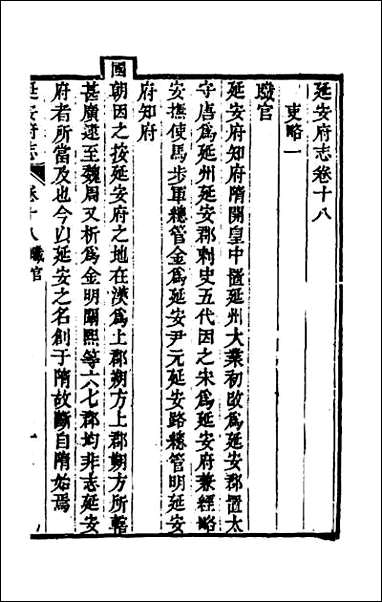 延安府志卷十八
吏略一
職官
延安府知府隋開皇中置延州大業初改爲延安郡置太
守唐爲延州延安郡刺史五代因之宋爲延安府兼經略
安撫使馬步軍總管金爲延安尹元延安路總管明延安
府知府
國朝因之按延安府之地在漢爲上郡朔方上郡朔方所轄
甚廣遠至魏周又析爲金明闡熙等六七郡均非志延安
府者所當及也今以延安之名創于隋故斷自隋始焉
延安府志 卷十八職官 一